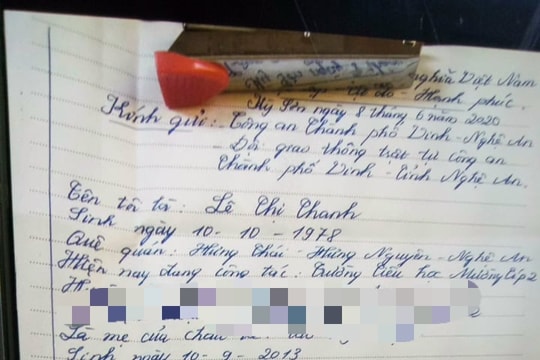 nghĩa Việt Nam
Tự do - Hạnh phúc.
Kỳ Sơn ngày 8 tháng 6 năm 2020
Kính gửi: - Công an Thành phố Vinh - Nghệ An
- Đội giao thông trật tự công an
Thành phố Vinh - Tỉnh Nghệ An.
Tên tôi là: Lê Thị Thanh
Sinh ngày 10 - 10 - 1978
Quê quán: Hưng Thái - Hưng Nguyên - Nghệ An
Hiện nay đang công tác: Trường tiểu học Mường Típ 2
Là mẹ của cháu
Sinh ngày 10 - 9 - 2013